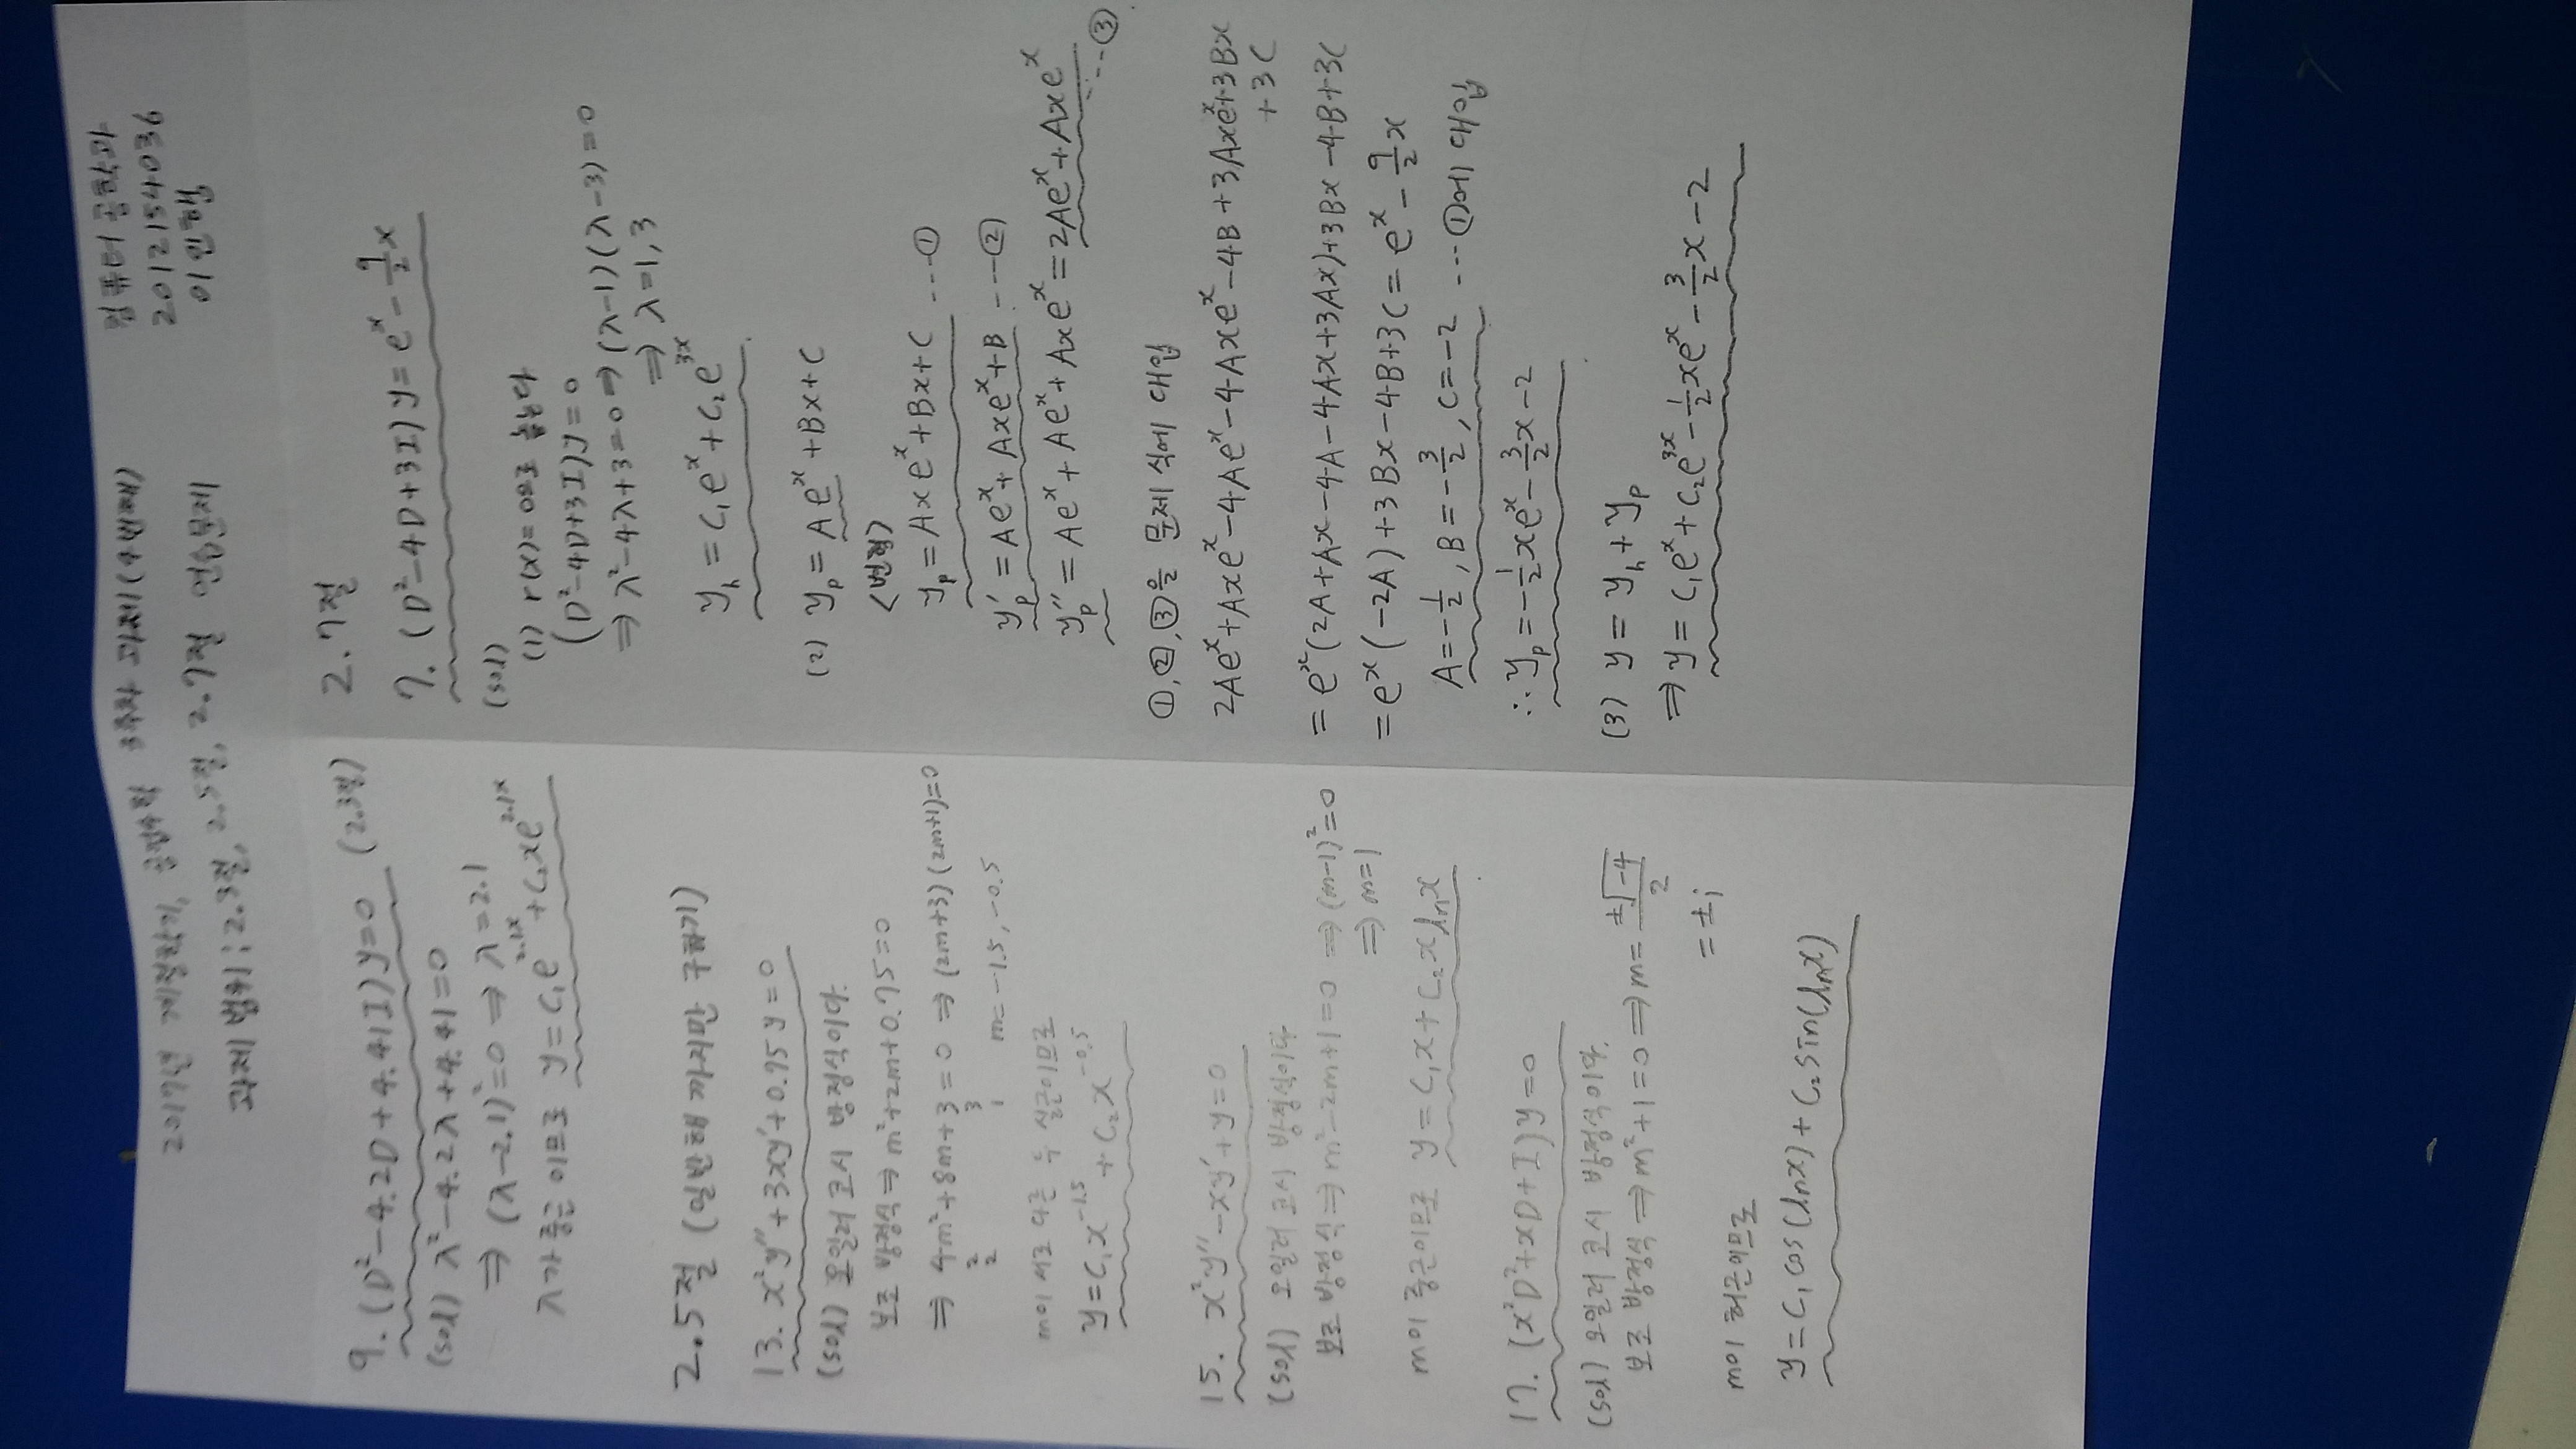 2017년 계절학기, 공업수학 3주차 과제(4번째)
과제 범위 : 2.3절, 2.5절, 2.7절 연습문제
컴퓨터 공학과
2012154036
9. (D²-4.2D+4.41I)y=0 (2.3절)
(sol) λ²-4.2λ+4.41=0
⇒ (λ-2.1)²=0 ⇒ λ=2.1
λ가 중근 이므로 y=C₁e^{2.1x}+C₂xe^{2.1x}
2.5절 (일반해 까지만 구하기)
13. x²y''+3xy'+0.75y=0
(sol) 오일러 코시 방정식이다.
보조 방정식 ⇒ m²+2m+0.75=0
⇒ 4m²+8m+3=0 ⇒ (2m+3)(2m+1)=0
2 3
2 1 m=-1.5, -0.5
m이 서로 다른 두 실근이므로
y=C₁x^{-1.5}+C₂x^{-0.5}
15. x²y''-xy'+y=0
(sol) 오일러 코시 방정식이다
보조 방정식 ⇒ m²-2m+1=0 ⇒ (m-1)²=0
⇒ m=1
m이 중근이므로 y=C₁x+C₂xlnx
17. (x²D²+xD+I)y=0
(sol) 오일러 코시 방정식이다.
보조 방정식 ⇒ m²+1=0 ⇒ m=±√-4/2
=±i
m이 허근이므로
y=C₁cos(lnx)+C₂sin(lnx)
2.7절
7. (D²-4D+3I)y=e^x-9/2x
(sol)
(1) r(x)=0으로 놓는다
(D²-4D+3I)y=0
⇒ λ²-4λ+3=0 ⇒ (λ-1)(λ-3)=0
⇒ λ=1,3
y_h=C₁e^x+C₂e^{3x}
(2) y_p=Ae^x+Bx+C
<변형>
y_p=Axe^x+Bx+C ---①
y_p'=Ae^x+Axe^x+B ---②
y_p''=Ae^x+Ae^x+Axe^x=2Ae^x+Axe^x
---③
①,②,③을 문제 식에 대입
2Ae^x+Axe^x-4Ae^x-4Axe^x-4B+3Axe^x+3Bx
+3C
=e^x(2A+Ax-4A-4Ax+3Ax)+3Bx-4B+3C
=e^x(-2A)+3Bx-4B+3C=e^x-9/2x
A=-1/2, B=-3/2, C=-2 ---①에 대입
∴ y_p=-1/2xe^x-3/2x-2
(3) y=y_h+y_p
⇒ y=C₁e^x+C₂e^{3x}-1/2xe^x-3/2x-2